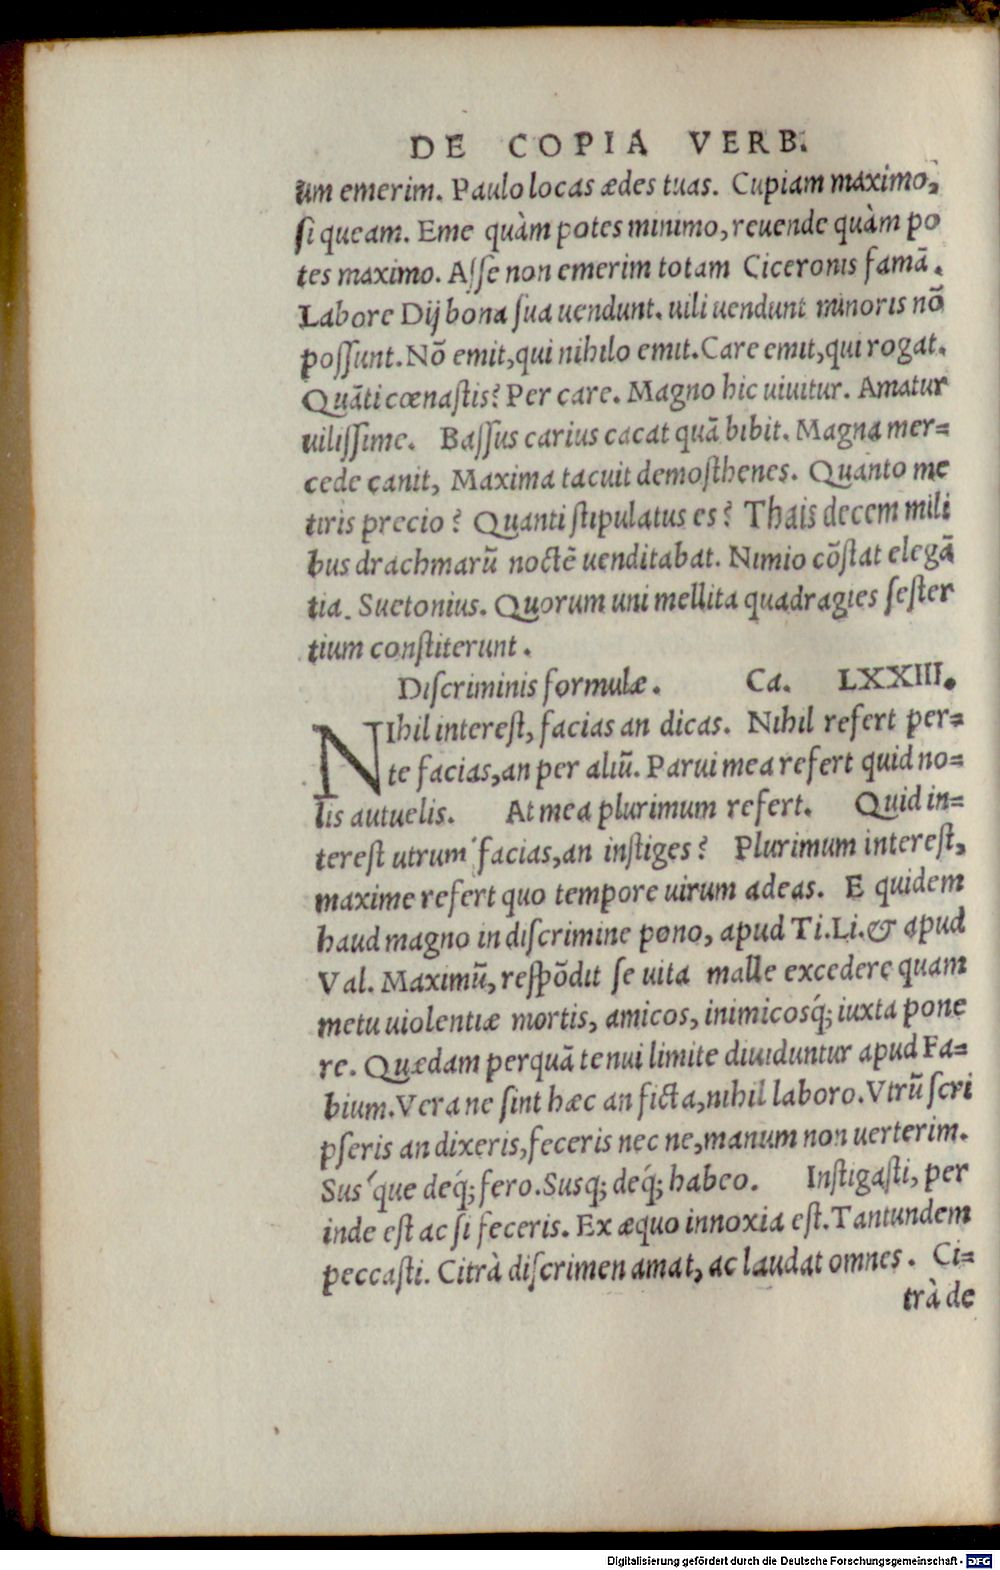 DE COPIA VERB.
um emerim. Paulo locas ædes tuas. Cupiam maximo,
ſi queam. Eme quàm potes minimo, reuende quàm po
tes maximo. Aſſe non emerim totam Ciceronis famã.
Labore Dij bona ſua uendunt. uili uendunt minoris nõ
poſſunt. Nõ emit, qui nihilo emit. Care emit, qui rogat.
Quãti cœnaſtis? Per care. Magno hic uiuitur. Amatur
uiliſſime. Baſſus carius cacat quã bibit. Magna mer=
cede canit, Maxima tacuit demoſthenes. Quanto me
tiris precio? Quanti ſtipulatus es? Thais decem mili
bus drachmarũ noctẽ uenditabat. Nimio cõſtat elegã
tia. Suetonius. Quorum uni mellita quadragies ſeſter
tium conſtiterunt.
Diſcriminis formulæ. Ca. LXXIII.
NIhil intereſt, facias an dicas. Nihil refert per=
te facias, an per aliũ. Parui mea refert quid no=
lis autuelis. At mea plurimum refert. Quid in=
tereſt utrum facias, an inſtiges? Plurimum intereſt,
maxime refert quo tempore uirum adeas. E quidem
haud magno in diſcrimine pono, apud Ti. Li. & apud
Val. Maximũ, reſpõdit ſe uita malle excedere quam
metu uiolentiæ mortis, amicos, inimicosq́; iuxta pone
re. Quædam perquã tenui limite diuiduntur apud Fa=
bium. Vera ne ſint hæc an ficta, nihil laboro. Vtrũ ſcri
pſeris an dixeris, feceris nec ne, manum non uerterim.
Sus que deq́; fero. Susq; deq́; habeo. Inſtigaſti, per
inde eſt ac ſi feceris. Ex æquo innoxia eſt. Tantundem
peccaſti. Citrà diſcrimen amat, ac laudat omnes. Ci=
trà de
Digitalisierung gefördert durch die Deutsche Forschungsgemeinschaft - DFG